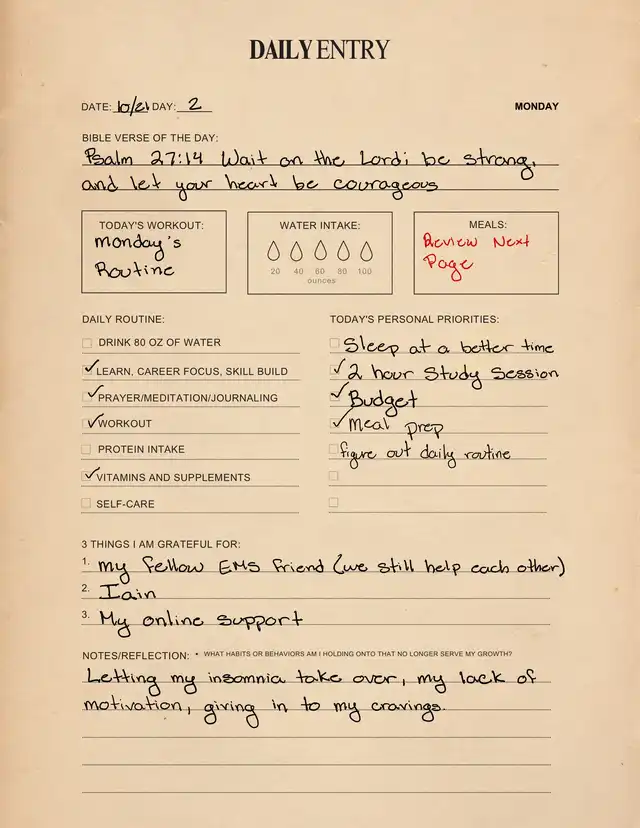 DAILY ENTRY
DATE: 10/21 DAY: 2 MONDAY
BIBLE VERSE OF THE DAY:
Psalm 27:14 Wait on the Lord; be strong,
and let your heart be courageous
TODAY'S WORKOUT:
Monday's
Routine
WATER INTAKE:
20 40 60 80 100
ounces
MEALS:
Review Next
Page
DAILY ROUTINE:
DRINK 80 OZ OF WATER
LEARN, CAREER FOCUS, SKILL BUILD
PRAYER/MEDITATION/JOURNALING
WORKOUT
PROTEIN INTAKE
VITAMINS AND SUPPLEMENTS
SELF-CARE
TODAY'S PERSONAL PRIORITIES:
Sleep at a better time
2 hour Study Session
Budget
Meal prep
figure out daily routine
3 THINGS I AM GRATEFUL FOR:
1. my fellow EMS friend (we still help each other)
2. Iain
3. My online support
NOTES/REFLECTION: • WHAT HABITS OR BEHAVIORS AM I HOLDING ONTO THAT NO LONGER SERVE MY GROWTH?
Letting my insomnia take over, my lack of
motivation, giving in to my cravings.